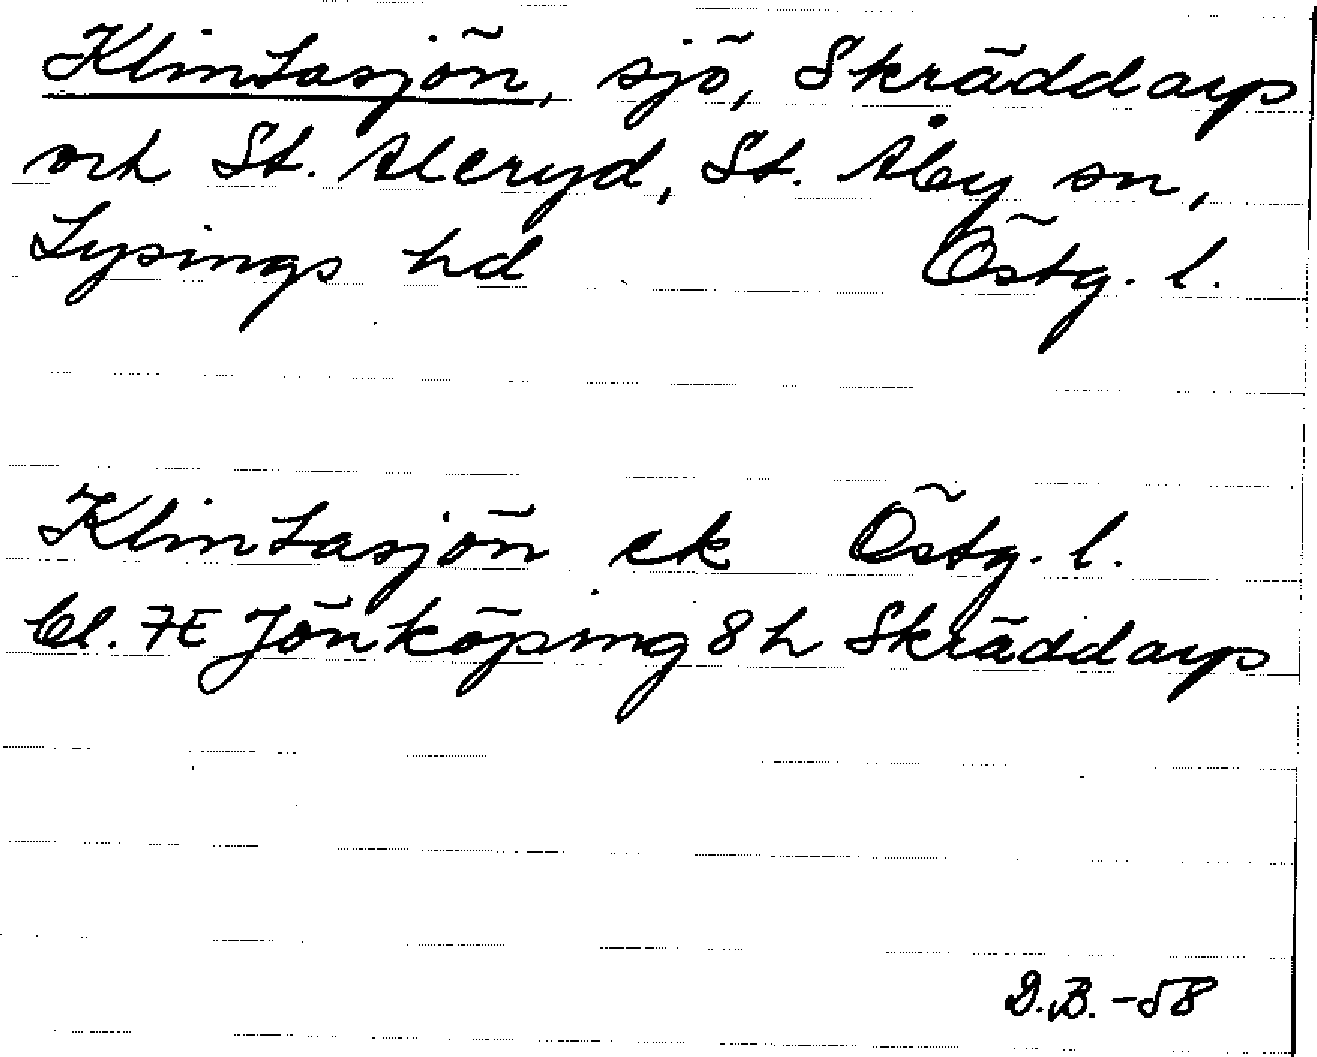 Klintasjön, sjö, Skräddarp
och St. Aleryd, St. Åby sn,
Lysings hd Östg. l.
Klintasjön ek Östg. l.
bl. 7E Jönköping 8h Skräddarp
D.B. -58